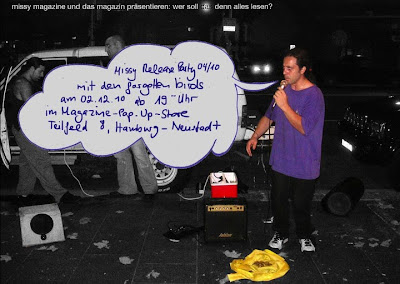 missy magazine und das magazin präsentieren: wer soll denn alles lesen?
Missy Release Party 04/10
mit den forgotten birds
am 02.12.10 ab 19 Uhr
im Magazine-Pop-Up-Store
Teilfeld 8, Hamburg-Neustadt